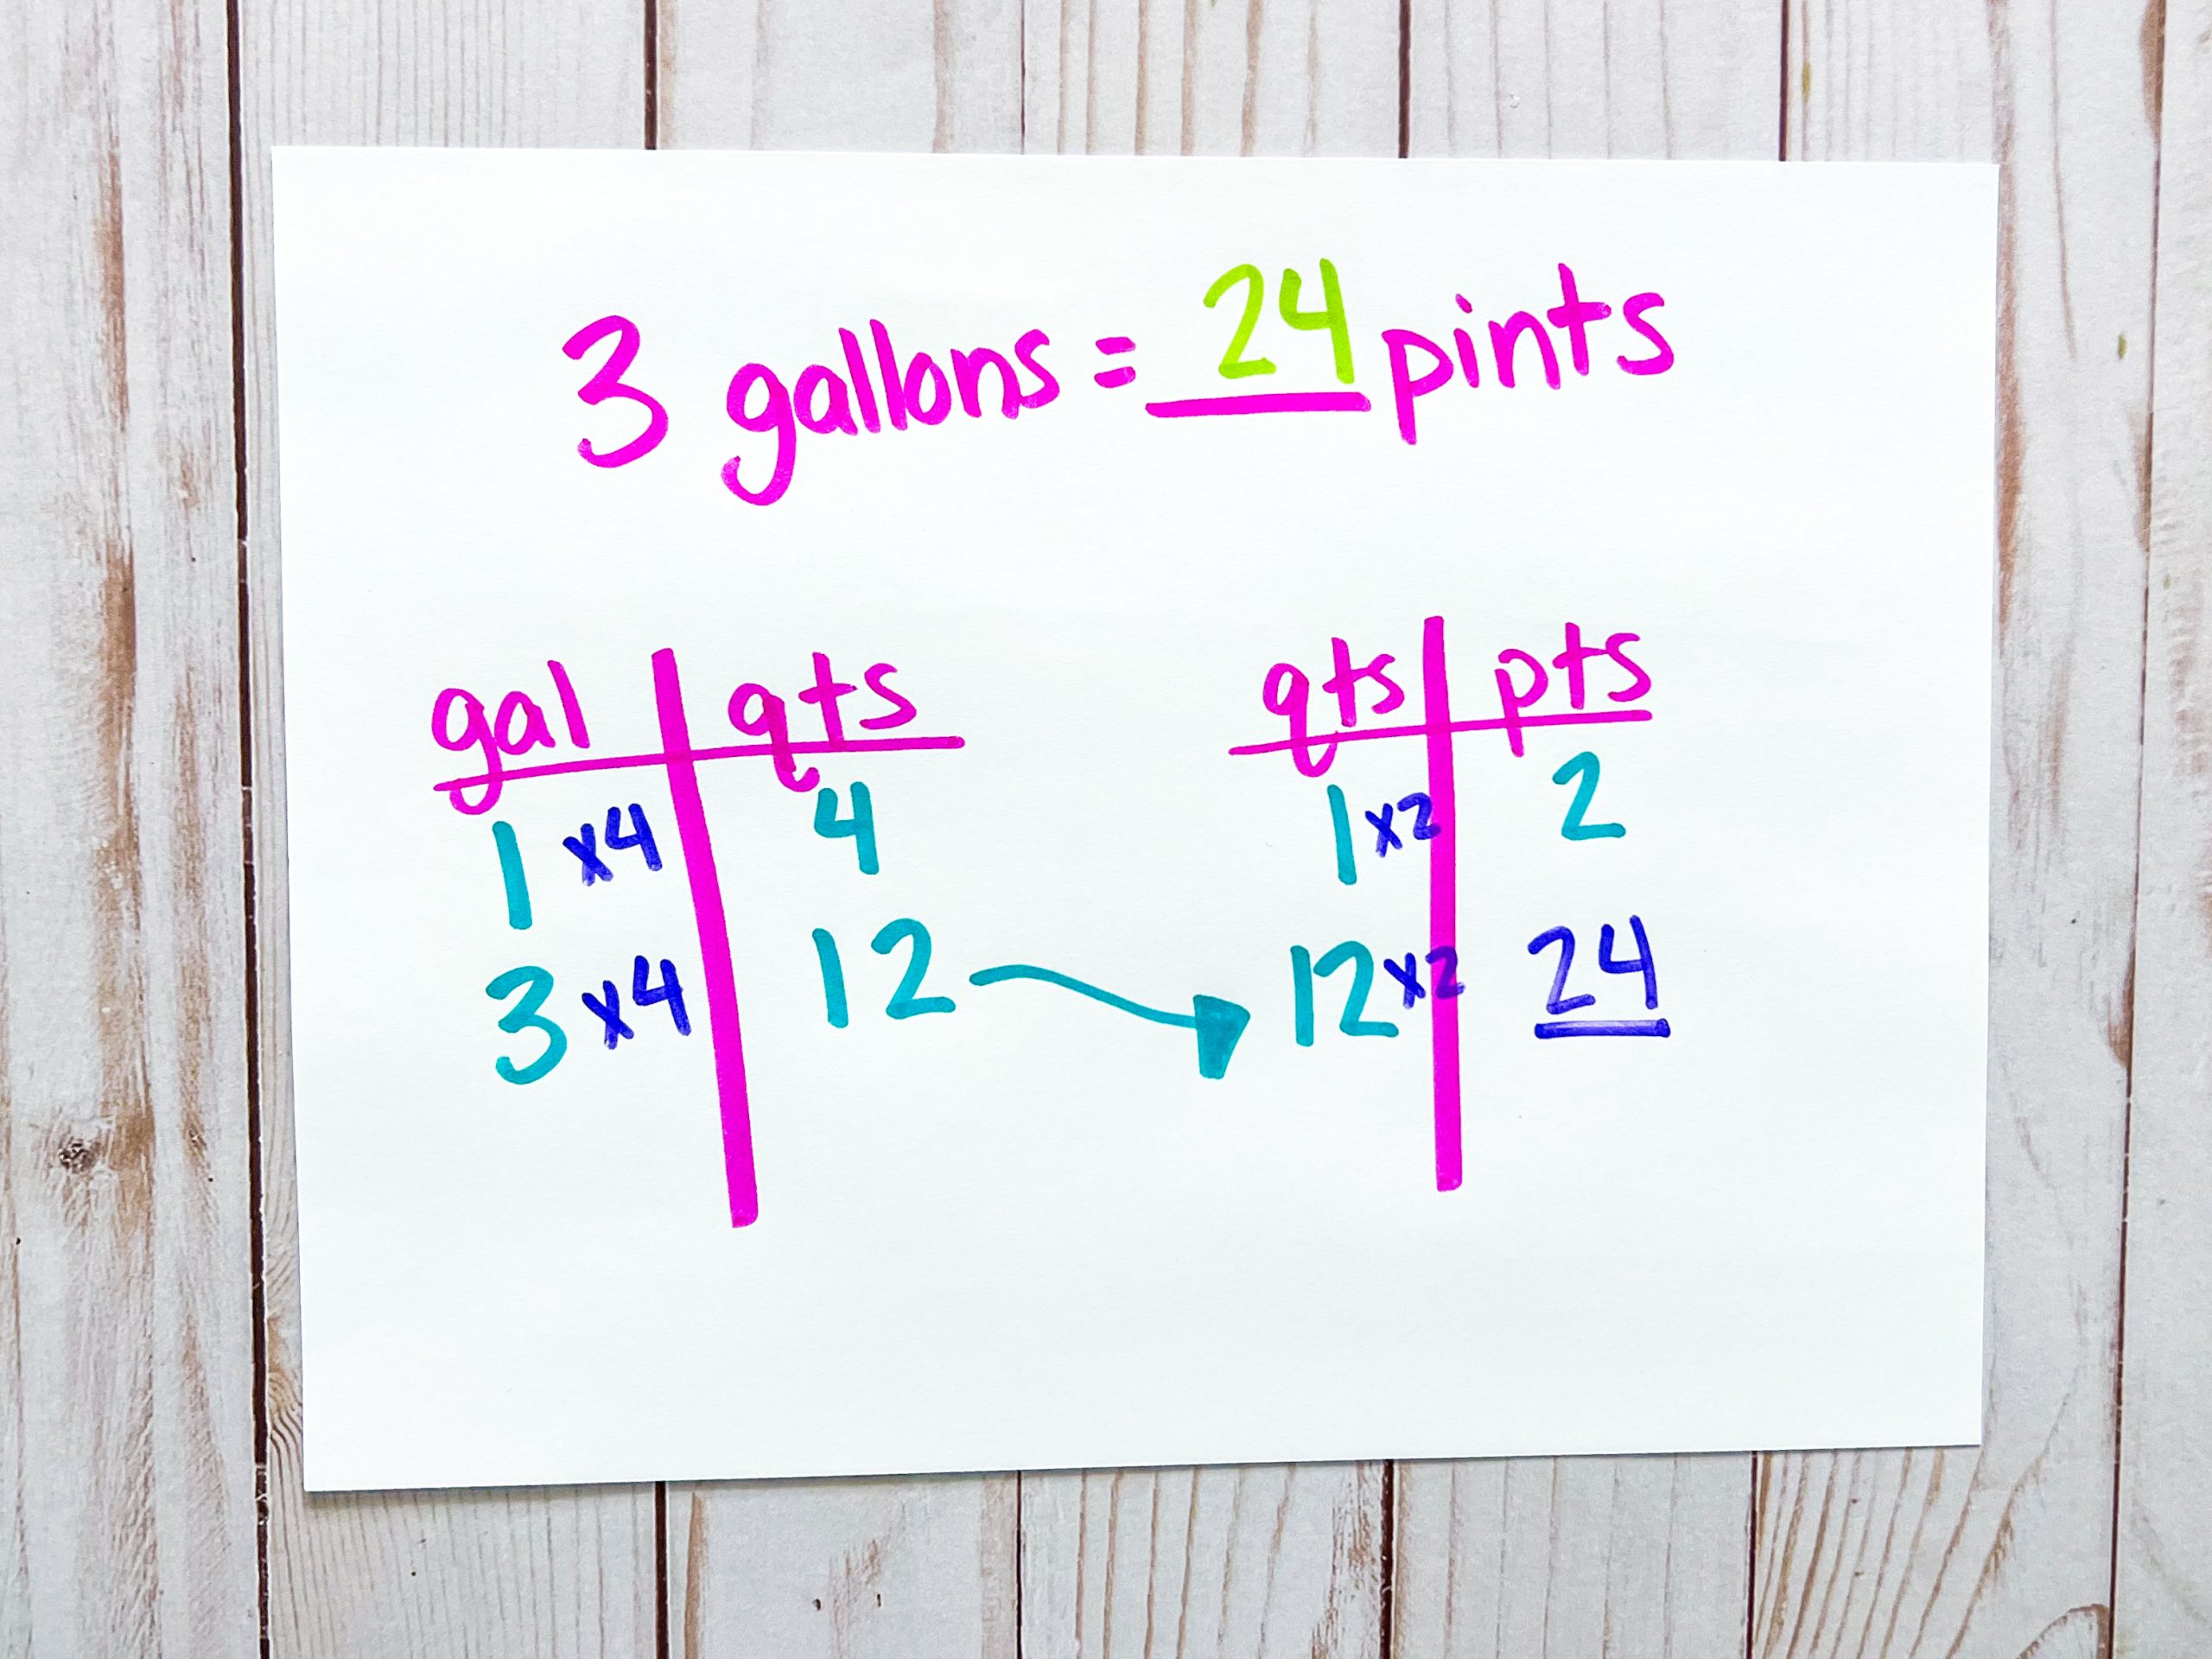 3 gallons = 24 pints
gal qts
1 x4 4
3 x4 12
qts pts
1 x2 2
12 x2 24